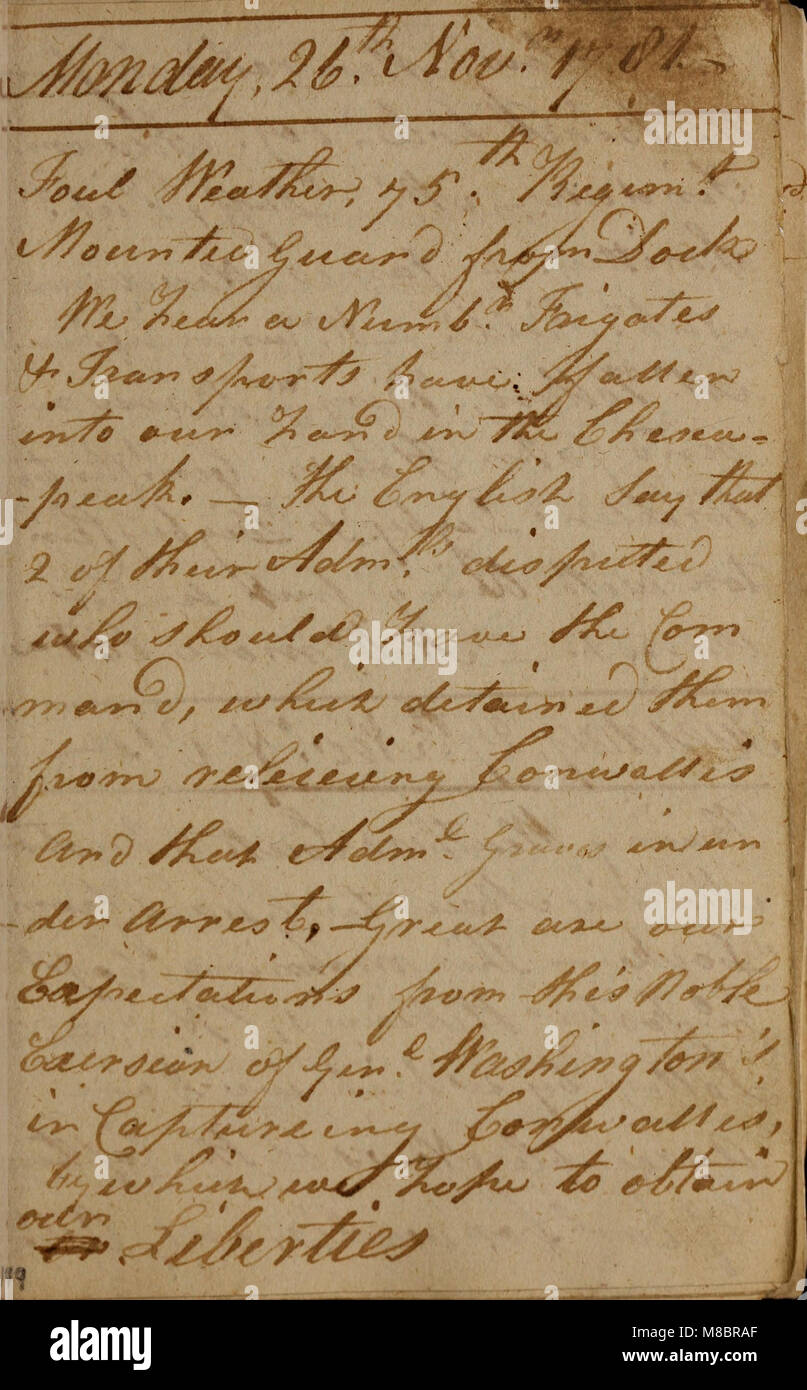 Monday, 26.th Nov.r 1781.
Foul Weather, 75.th Regim.t
Mounted Guard from Dock
We hear a Numb.r Frigates
& Transports have fallen
into our hand in the Chesea=
-peak. — the English Say that
2 of their Adm.ls disputed
who should have the Com
mand, which detained them
from releieving Cornwallis
and that Adm.l Graves in un
der Arrest, — Great are our
Expectations from this Noble
Exersion of Gen.l Washington's
in Captureing Cornwallis,
by which we hope to obtain
our Liberties
119
alamy
alamy
Image ID: M8BRAF
www.alamy.com